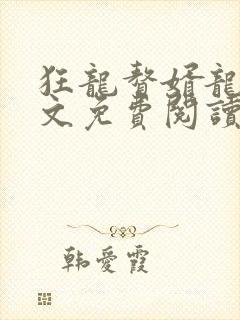 狂龍贅婿龍
文免費閱讀
韩愛霞